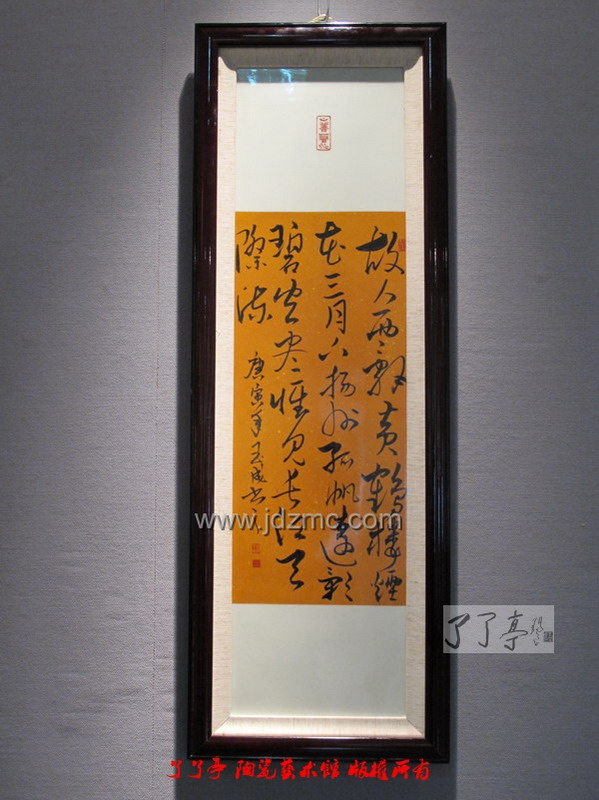 故人西辭黃鶴樓煙
花三月下揚州孤帆遠影
碧空尽惟見長江天
際流
庚寅年玉成书
www.jdzmc.com
了了亭
了了亭 陶瓷藝术館 版權所有